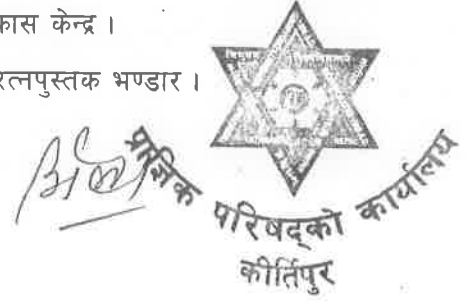 कास केन्द्र ।
रत्नपुस्तक भण्डार ।
प्राज्ञिक परिषद्को कार्यालय
कीर्तिपुर